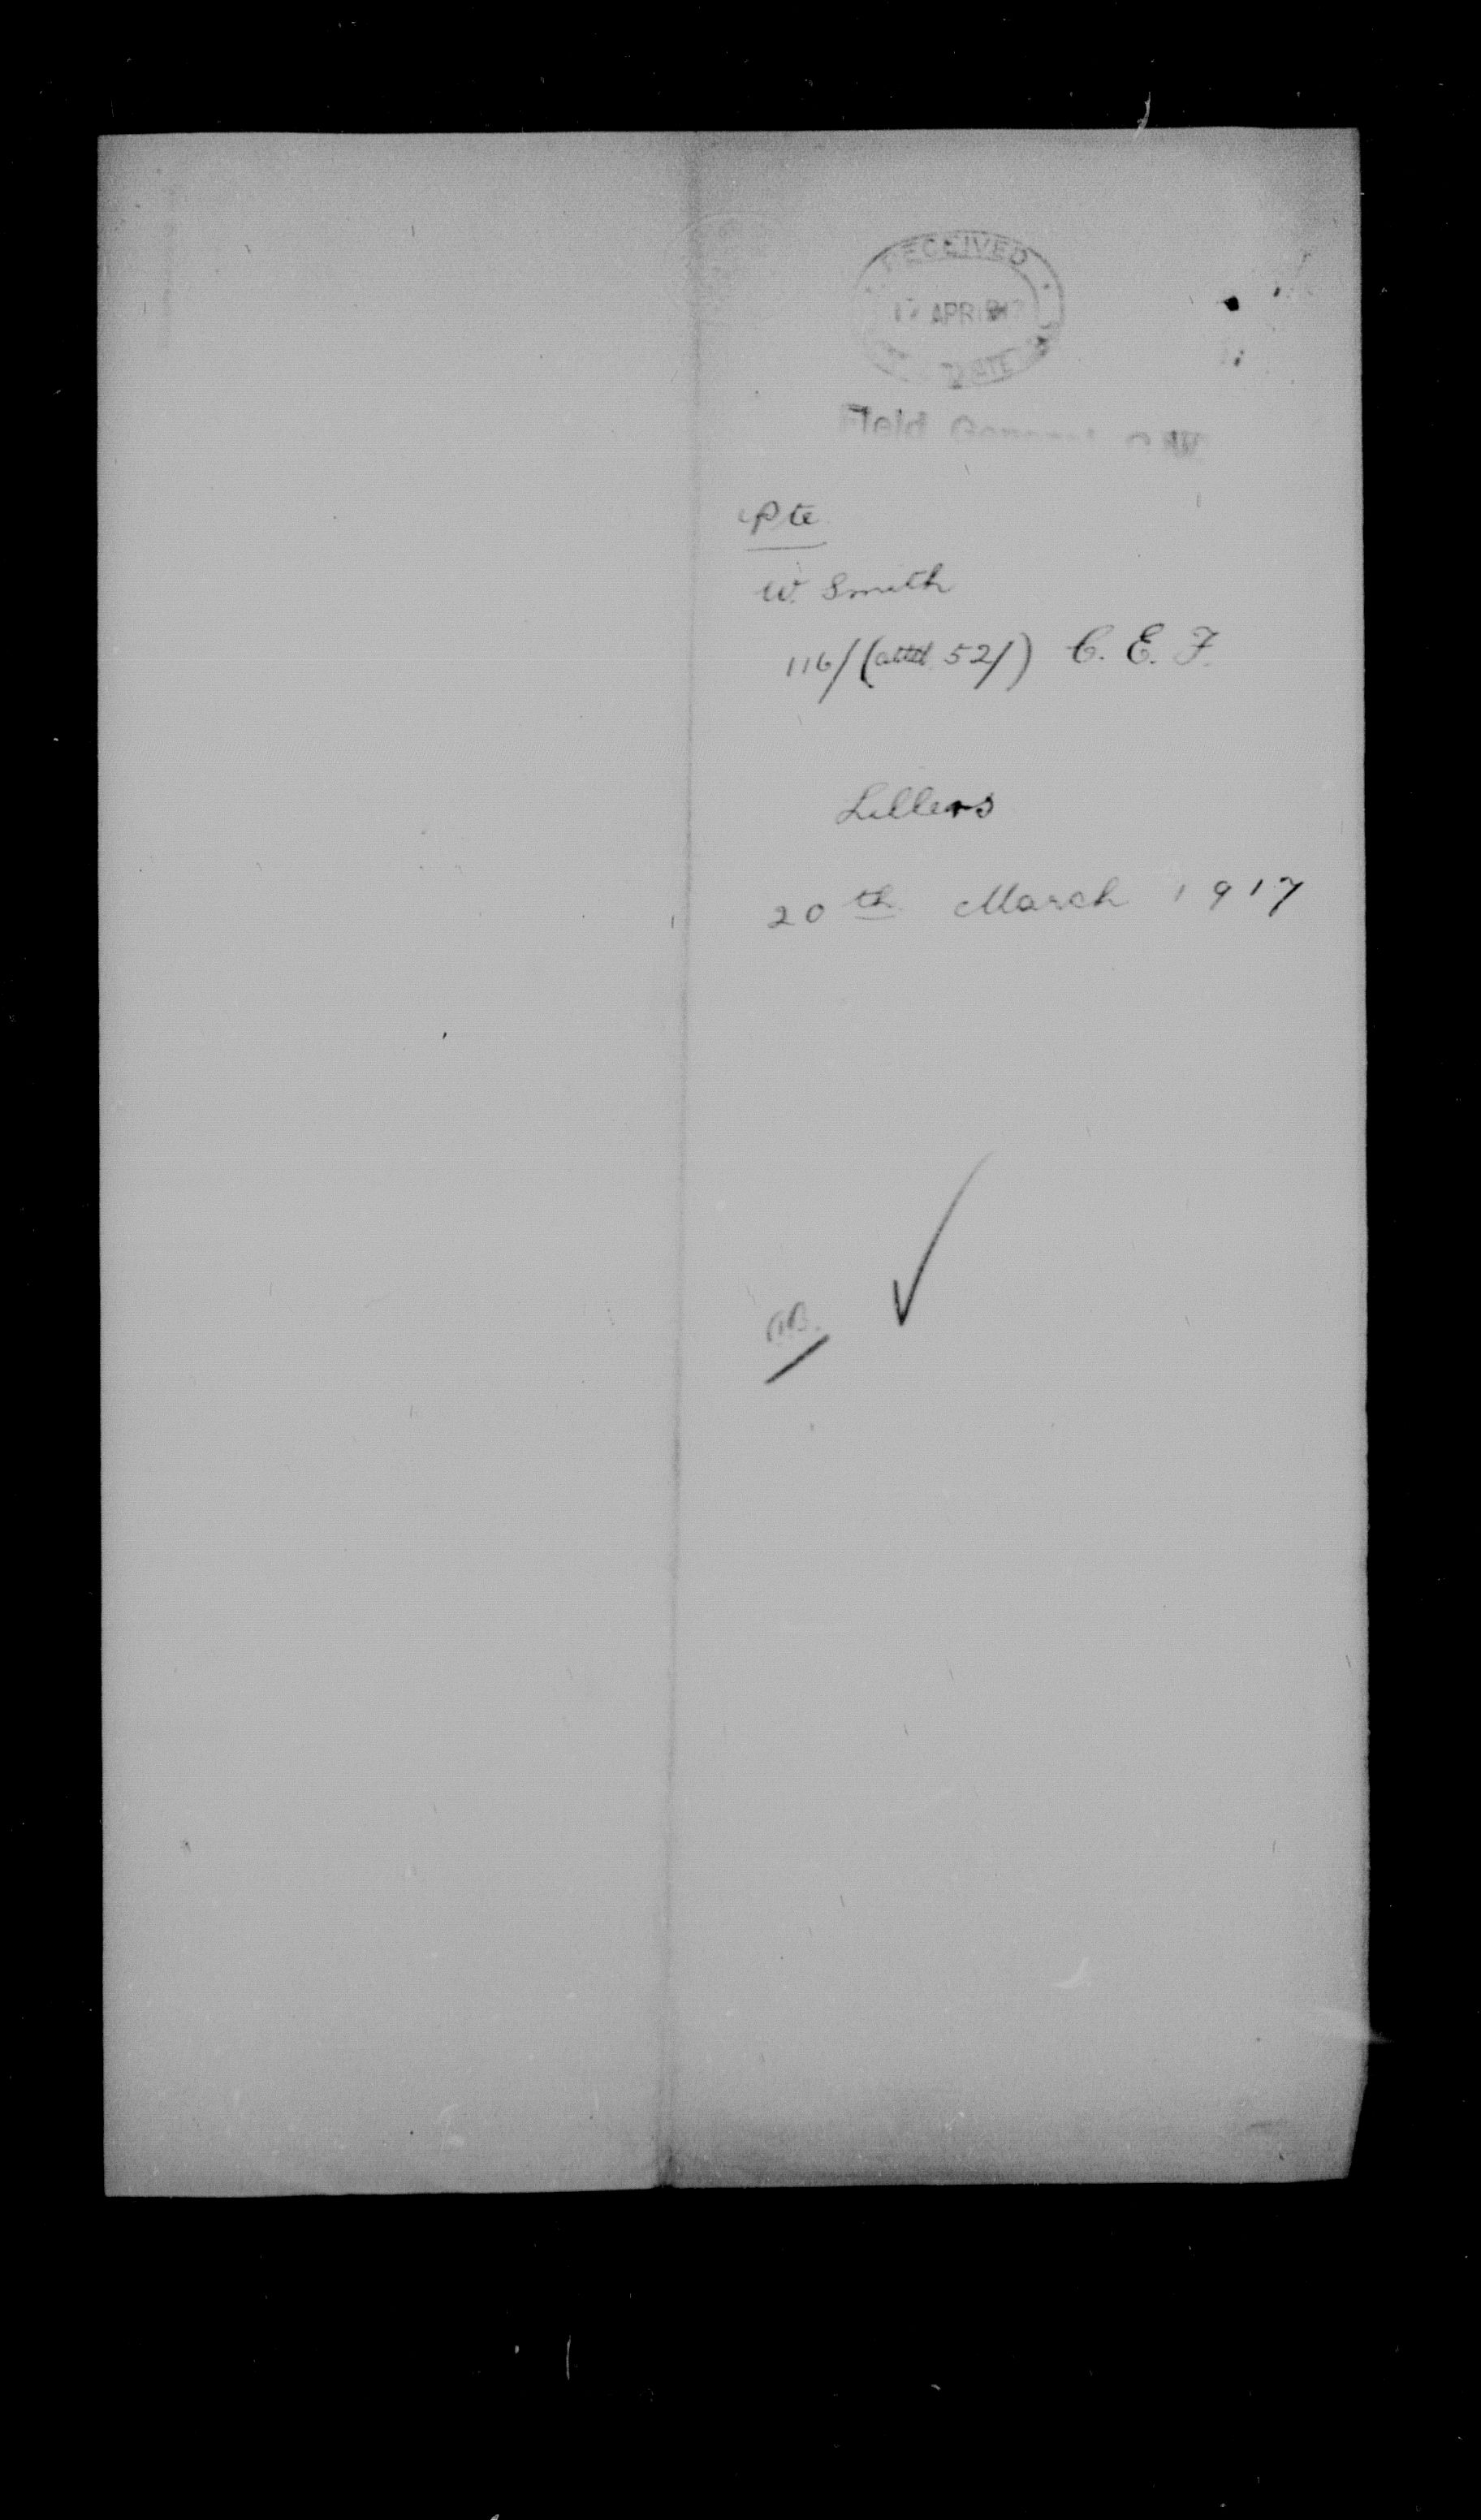 RECEIVED
APR 1917
Field General
Pte
W. Smith
116/(attd 52/) C. E. F.
Lillers
20th March 1917